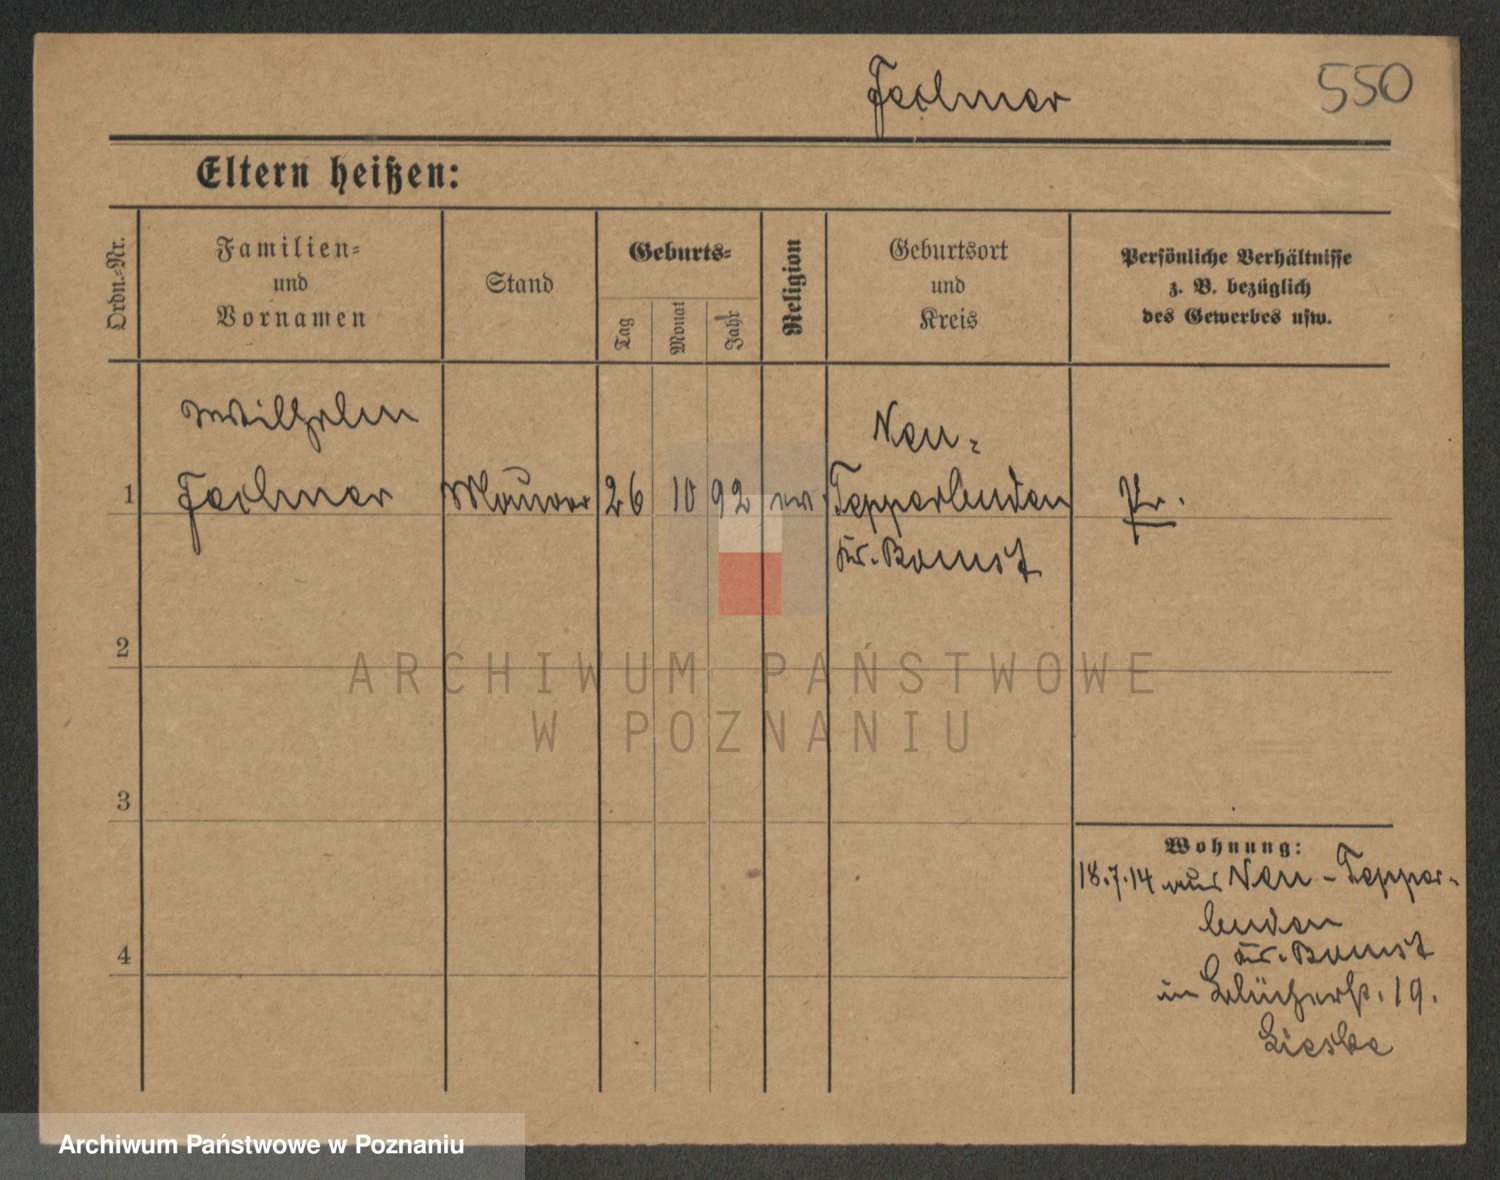 Fechner
550
Eltern heißen:
Ordn.-Nr.
Familien-
und
Vornamen
Stand
Geburts-
Tag
Monat
Jahr
Religion
Geburtsort
und
Kreis
Persönliche Verhältnisse
z. B. bezüglich
des Gewerbes usw.
Wilhelm
Neu-
1
Fechner
Maurer
26
10
92
ev.
Tepperbuden
Pr.
Kr. Bomst
2
ARCHIWUM PAŃSTWOWE
W POZNANIU
3
Wohnung:
18.7.14 aus Neu-Tepper-
buden
4
Kr. Bomst
in Blücherst. 19.
Lieske
Archiwum Państwowe w Poznaniu